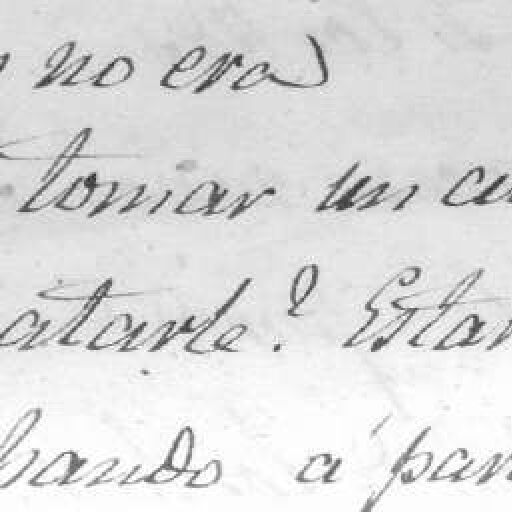 no era
tomar un cu
atarle? Estan
bando á par